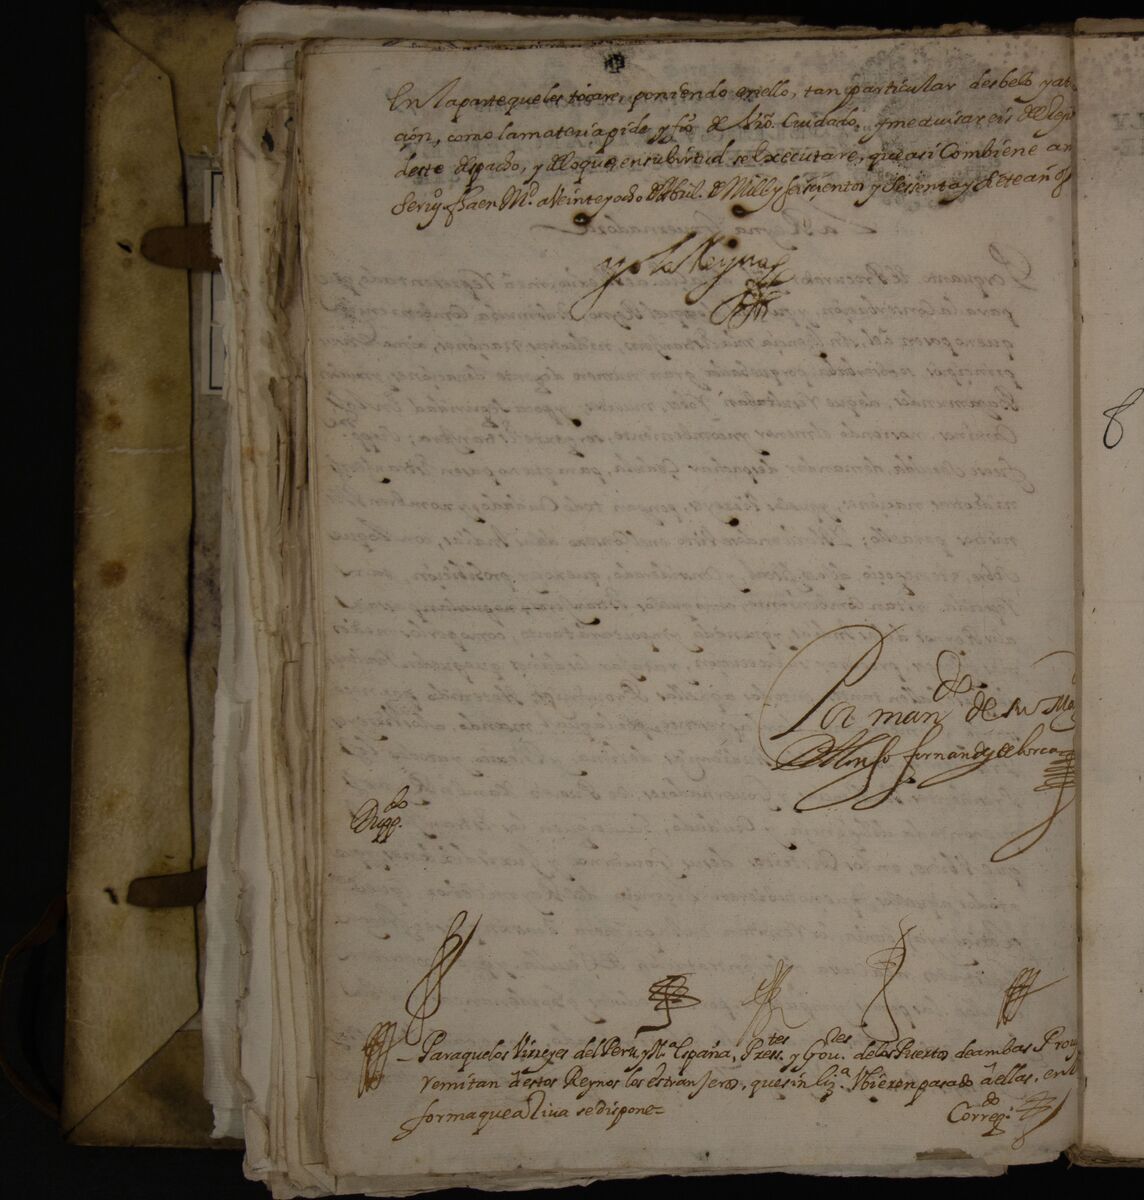 En la parte que les tocare, poniendo en ello, tan particular desbelo y at
ción, como la materia pide y fio de Vro. Cuidado, y me avisareis del
deste despacho, y de lo que en su birtud se Executare, que asi Combiene a mi
Seruº. fha en Md. a Veinte y ocho de Abril de Mill y seiscientos y Sesenta y siete años
yo la Reyna
Por mandº. de su Mag
Alonso fernandez de lorca
Dupp.do
8
Para que los Virreyes del Peru, y Na. España, Press.tes y Gou.res de los Puertos de ambas Prou
remitan a estos Reynos los estranjeros, que sin liz.a Vbieren pasado a ellas, en la
forma que aRiua se dispone =
Correg.do